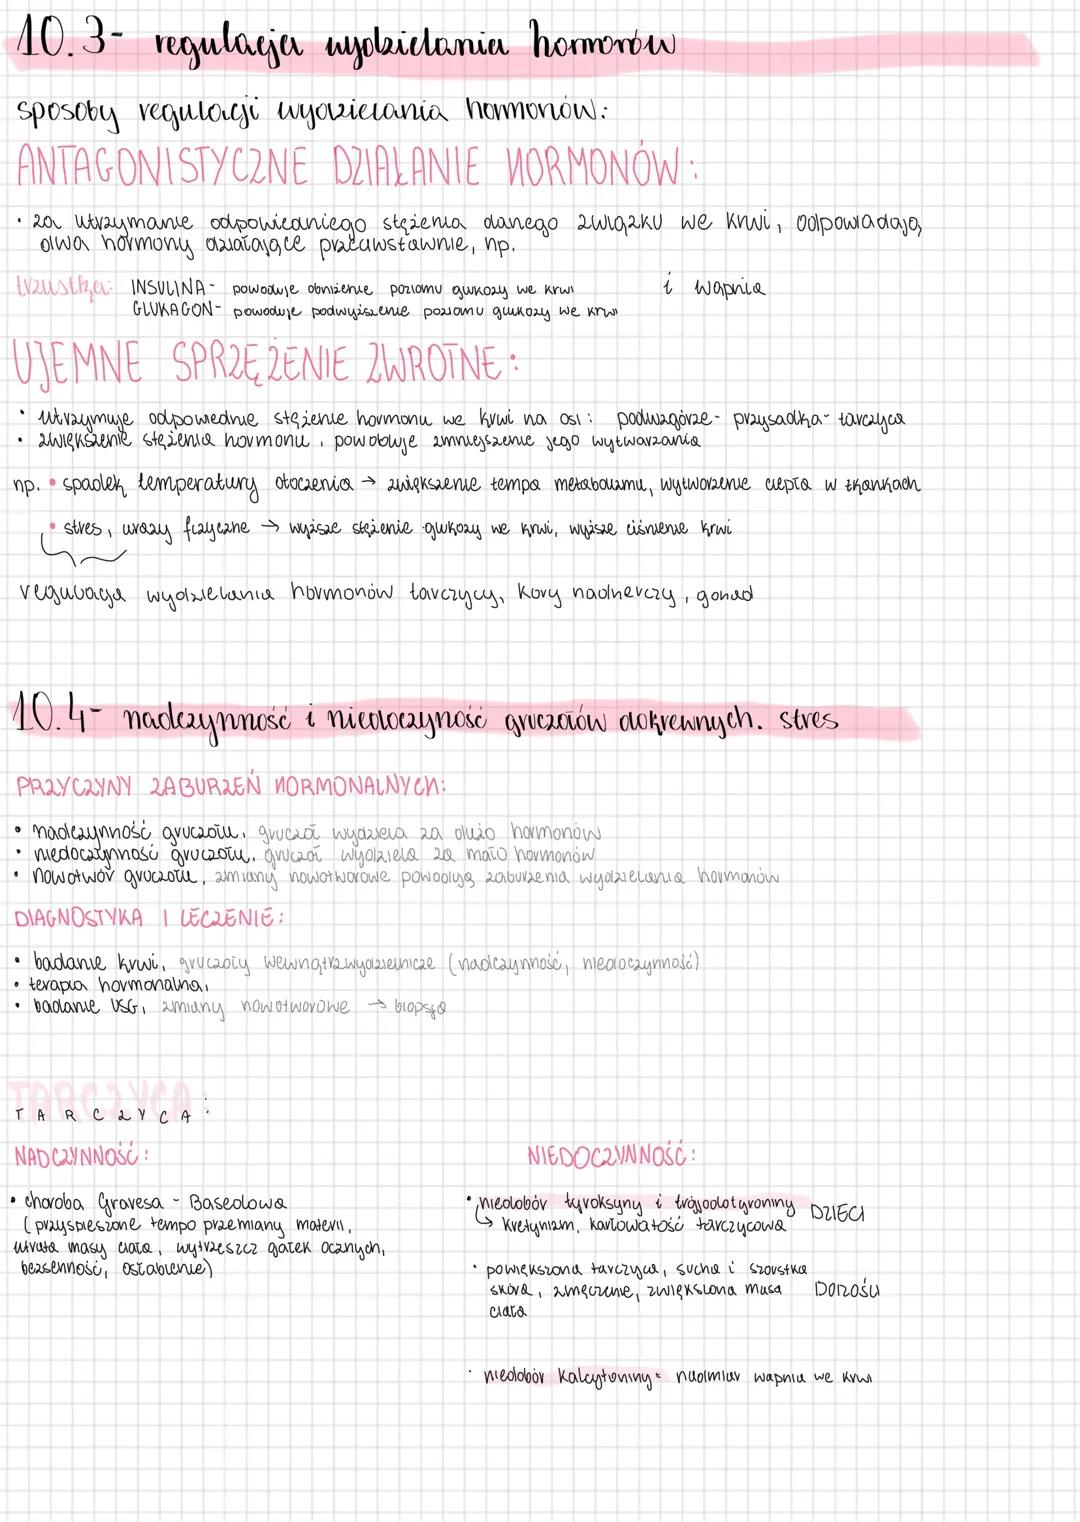 10.3- regulacja wydzielania hormonów
sposoby regulacji wydzielania hormonów:
ANTAGONISTYCZNE DZIAŁANIE HORMONÓW:
• za utrzymanie odpowiedniego stężenia danego związku we krwi, odpowiadają
dwa hormony działające przeciwstawnie, np.
trzustka: INSULINA- powoduje obniżenie poziomu glukozy we krwi i wapnia
GLUKAGON- powoduje podwyższenie poziomu glukozy we krwi
UJEMNE SPRZĘŻENIE ZWROTNE:
• utrzymuje odpowiednie stężenie hormonu we krwi na osi: podwzgórze- przysadka- tarczyca
• zwiększenie stężenia hormonu, powoduje zmniejszenie jego wytwarzania
np. • spadek temperatury otoczenia → zwiększenie tempa metabolizmu, wytworzenie ciepła w tkankach
• stres, urazy fizyczne → wyższe stężenie glukozy we krwi, wyższe ciśnienie krwi
regulacja wydzielania hormonów tarczycy, kory nadnerczy, gonad
10.4- nadczynność i niedoczyność gruczołów dokrewnych. stres
PRZYCZYNY ZABURZEŃ HORMONALNYCH:
• nadczynność gruczołu, gruczoł wydziela za dużo hormonów
• niedoczynność gruczołu, gruczoł wydziela za mało hormonów
• nowotwór gruczołu, zmiany nowotworowe powodują zaburzenia wydzielania hormonów
DIAGNOSTYKA I LECZENIE:
• badanie krwi, gruczoły wewnątrzwydzielnicze (nadczynność, niedoczynność)
• terapia hormonalna,
• badanie USG, zmiany nowotworowe → biopsja
TARCZYCA:
TARCZYCA
NADCZYNNOŚĆ:
• choroba Gravesa - Basedowa
(przyspieszone tempo przemiany materii,
utrata masy ciała, wytrzeszcz gałek ocznych,
bezsenność, osłabienie)
NIEDOCZYNNOŚĆ:
• niedobór tyroksyny i trójjodotyroniny DZIECI
↳ kretynizm, karłowatość tarczycowa
• powiększona tarczyca, sucha i szorstka
skóra, zmęczenie, zwiększona masa DOROŚLI
ciała
• niedobór kalcytoniny = nadmiar wapnia we krwi